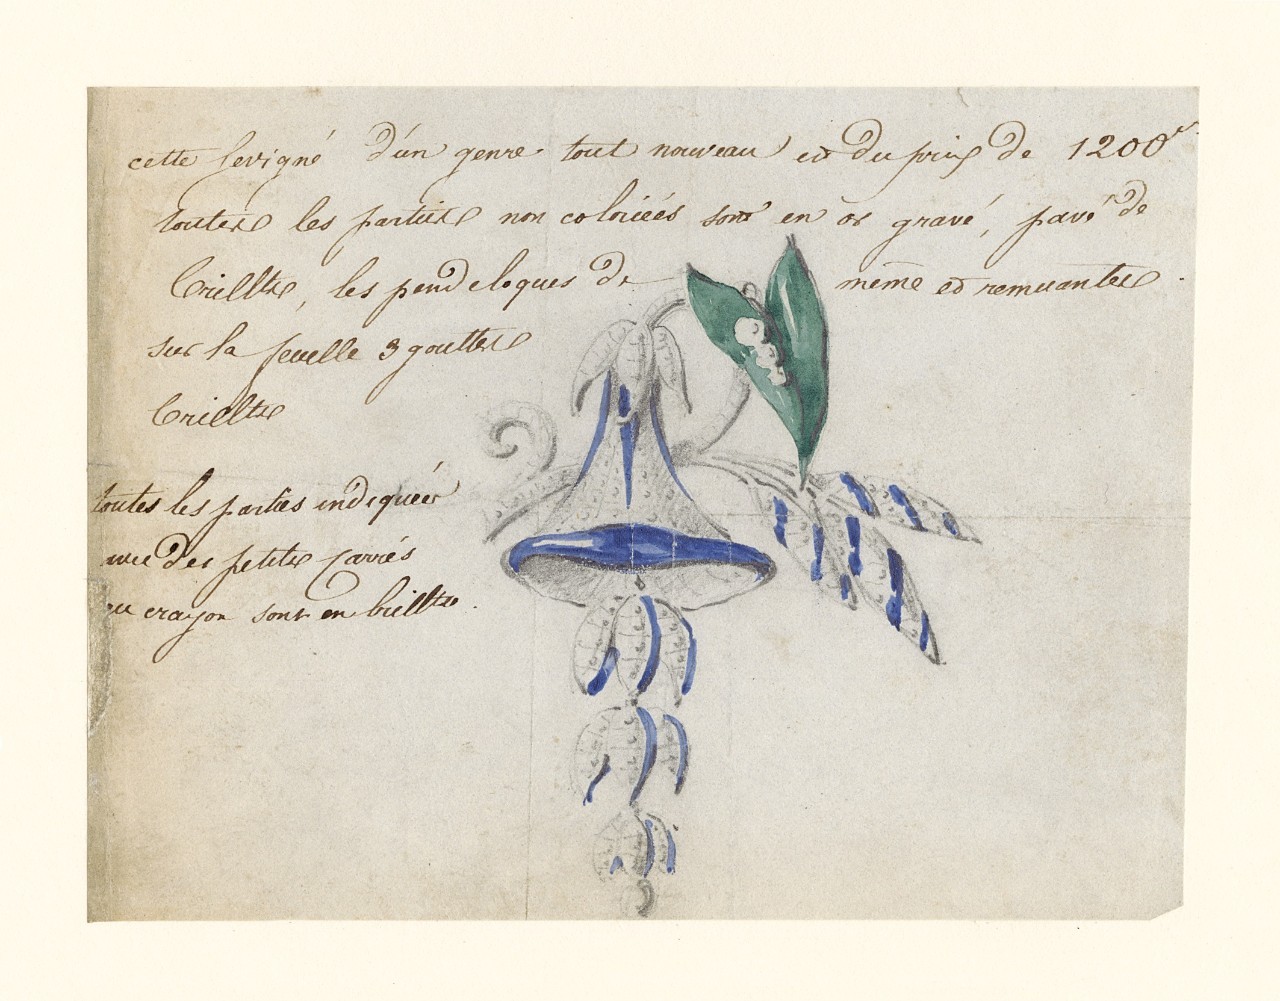 cette sevigné d'un genre tout nouveau est du prix de 1200
toutes les parties non coloriées sont en or gravé, pavé de
brillts, les pendeloques de même et remuantes.
sur la feuille 3 gouttes
brillts
toutes les parties indiquées
avec des petits carrés
au crayon sont en brillts.